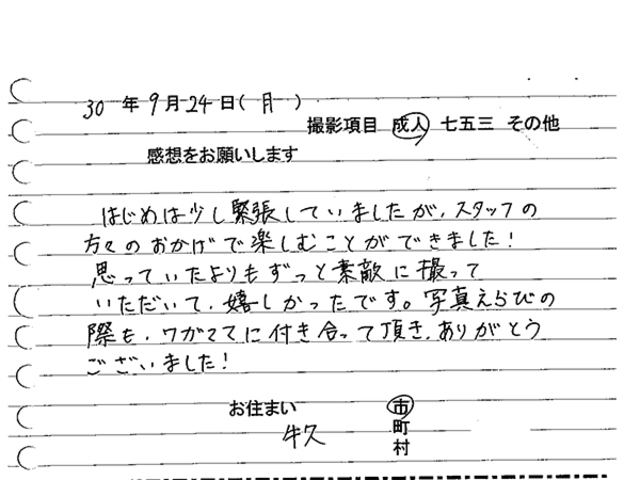 30 年 9月 24日(月)
撮影項目 成人 七五三 その他
感想をお願いします
はじめは少し緊張していましたが、スタッフの
方々のおかげで楽しむことができました!
思っていたよりもずっと素敵に撮って
いただいて、嬉しかったです。写真えらびの
際も、ワガママに付き合って頂き、ありがとう
ございました!
お住まい 市
牛久 町
村